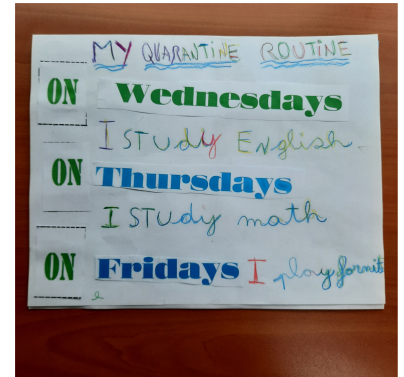 MY QUARANTINE ROUTINE
ON Wednesdays
I STUdy English.
ON Thursdays
I STUdy math
ON Fridays I play fornit
e